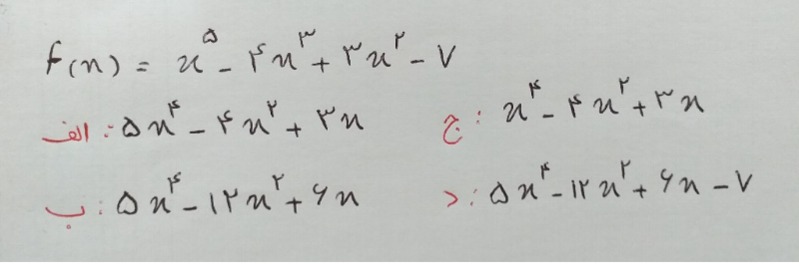 f(x) = x^۵ - ۴x^۳ + ۳x^۲ - ۷
الف: ۵x^۴ - ۴x^۲ + ۳x
ج: x^۴ - ۴x^۲ + ۳x
ب: ۵x^۴ - ۱۲x^۲ + ۶x
د: ۵x^۴ - ۱۲x^۲ + ۶x - ۷